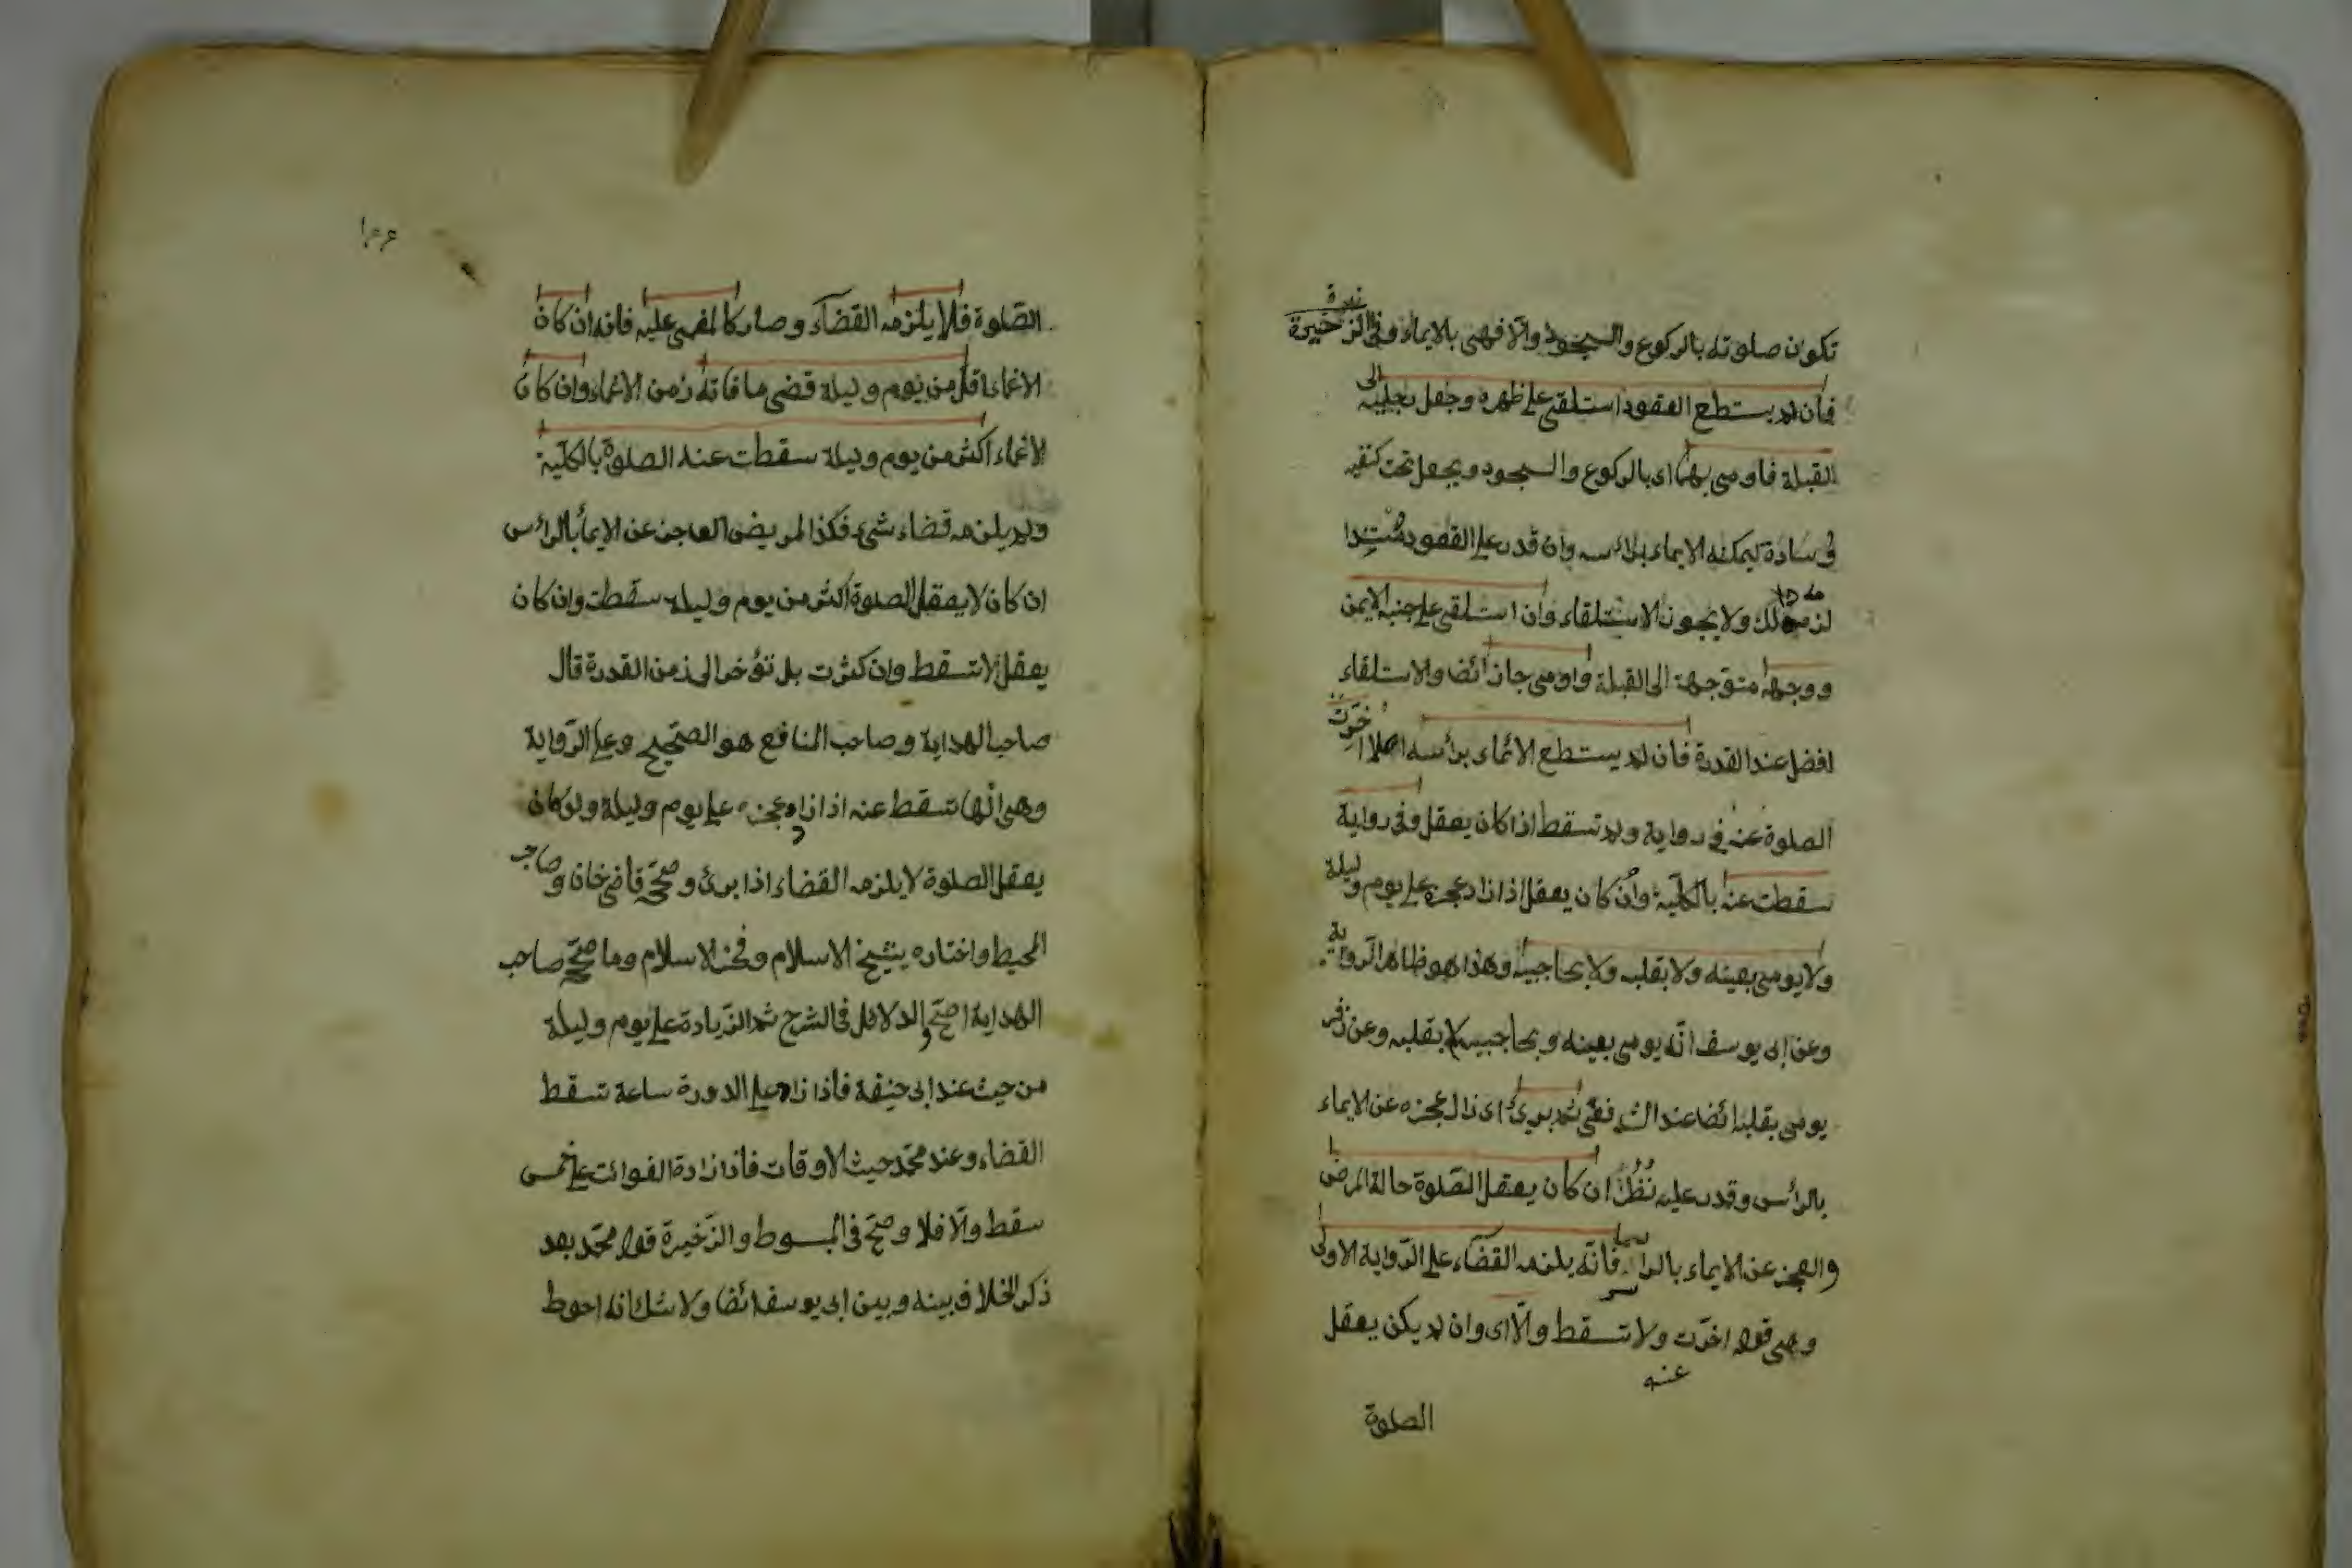 تكون صلوته بالركوع والسجود والا فهى بالايماء وفى الذخيرة
فان لم يستطع القعود استلقى على ظهره وجعل رجليه الى
القبلة فاومى بهما اى بالركوع والسجود ويجعل تحت كتفيه
وسادة ليمكنه الايماء برأسه وان قدر على القعود مستندا
لزمه ذلك ولا يجوز الاستلقاء وان استلقى على جنبه الايمن
ووجهه متوجهة الى القبلة واومى جاز ائضا والاستلقاء
افضل عند القدرة فان لم يستطع الائماء برأسه اصلا اخرت
الصلوة عنه فى رواية ولم تسقط اذا كان يعقل وفى رواية
سقطت عنه بالكلية وان كان يعقل اذا زاد عجزه على يوم وليلة
ولا يومى بعينه ولا بقلبه ولا بحاجبيه وهذا هو ظاهر الرواية
وعن ابى يوسف انه يومى بعينه وبحاجبيه لا بقلبه وعن زفر
يومى بقلبه ائضا عند الشافعى ثم برئ اى زال عجزه عن الايماء
بالرأس وقدر عليه نظر ان كان يعقل الصلوة حالة المرض
والعجز عن الايماء بالرأس فانه يلزمه القضاء على الرواية الاولى
وهى قوله اخرت ولا تسقط والا اى وان لم يكن يعقل
عنه
الصلوة
الصلوة فلا يلزمه القضاء وصار كالمغمى عليه فانه ان كان
الاغماء اقل من يوم وليلة قضى ما فاته زمن الاغماء وان كان
الاغماء اكثر من يوم وليلة سقطت عنه الصلوة بالكلية
ولم يلزمه قضاء شئ فكذا المريض العاجز عن الايماء بالرأس
ان كان لا يعقل الصلوة اكثر من يوم وليلة سقطت وان كان
يعقل لا تسقط وان كثرت بل تؤخر الى زمن القدرة قال
صاحب الهداية وصاحب المنافع هو الصحيح وعلى الرواية
وهى انها تسقط عنه اذا زاد عجزه على يوم وليلة ولو كان
يعقل الصلوة لا يلزمه القضاء اذا برئ وصححه قاضى خان وصاحب
المحيط واختاره شيخ الاسلام وفخر الاسلام وما صححه صاحب
الهداية اصح والدلائل فى الشرح ثم الزيادة على يوم وليلة
من حيث عند ابى حنيفة فاذا زاد على الدورة ساعة تسقط
القضاء وعند محمد حيث الاوقات فاذا زادة الفوائت على خمس
سقط والا فلا وصح فى المبسوط والذخيرة قول محمد بعد
ذكر الخلاف بينه وبين ابى يوسف ائضا ولا شك انه احوط